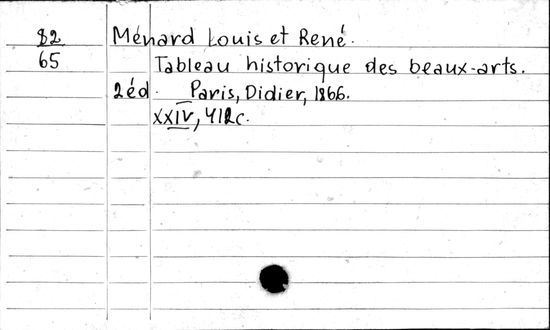 82 Ménard Louis et René.
65 Tableau historique des beaux-arts.
2 éd. Paris, Didier, 1866.
XXIV, 412c.